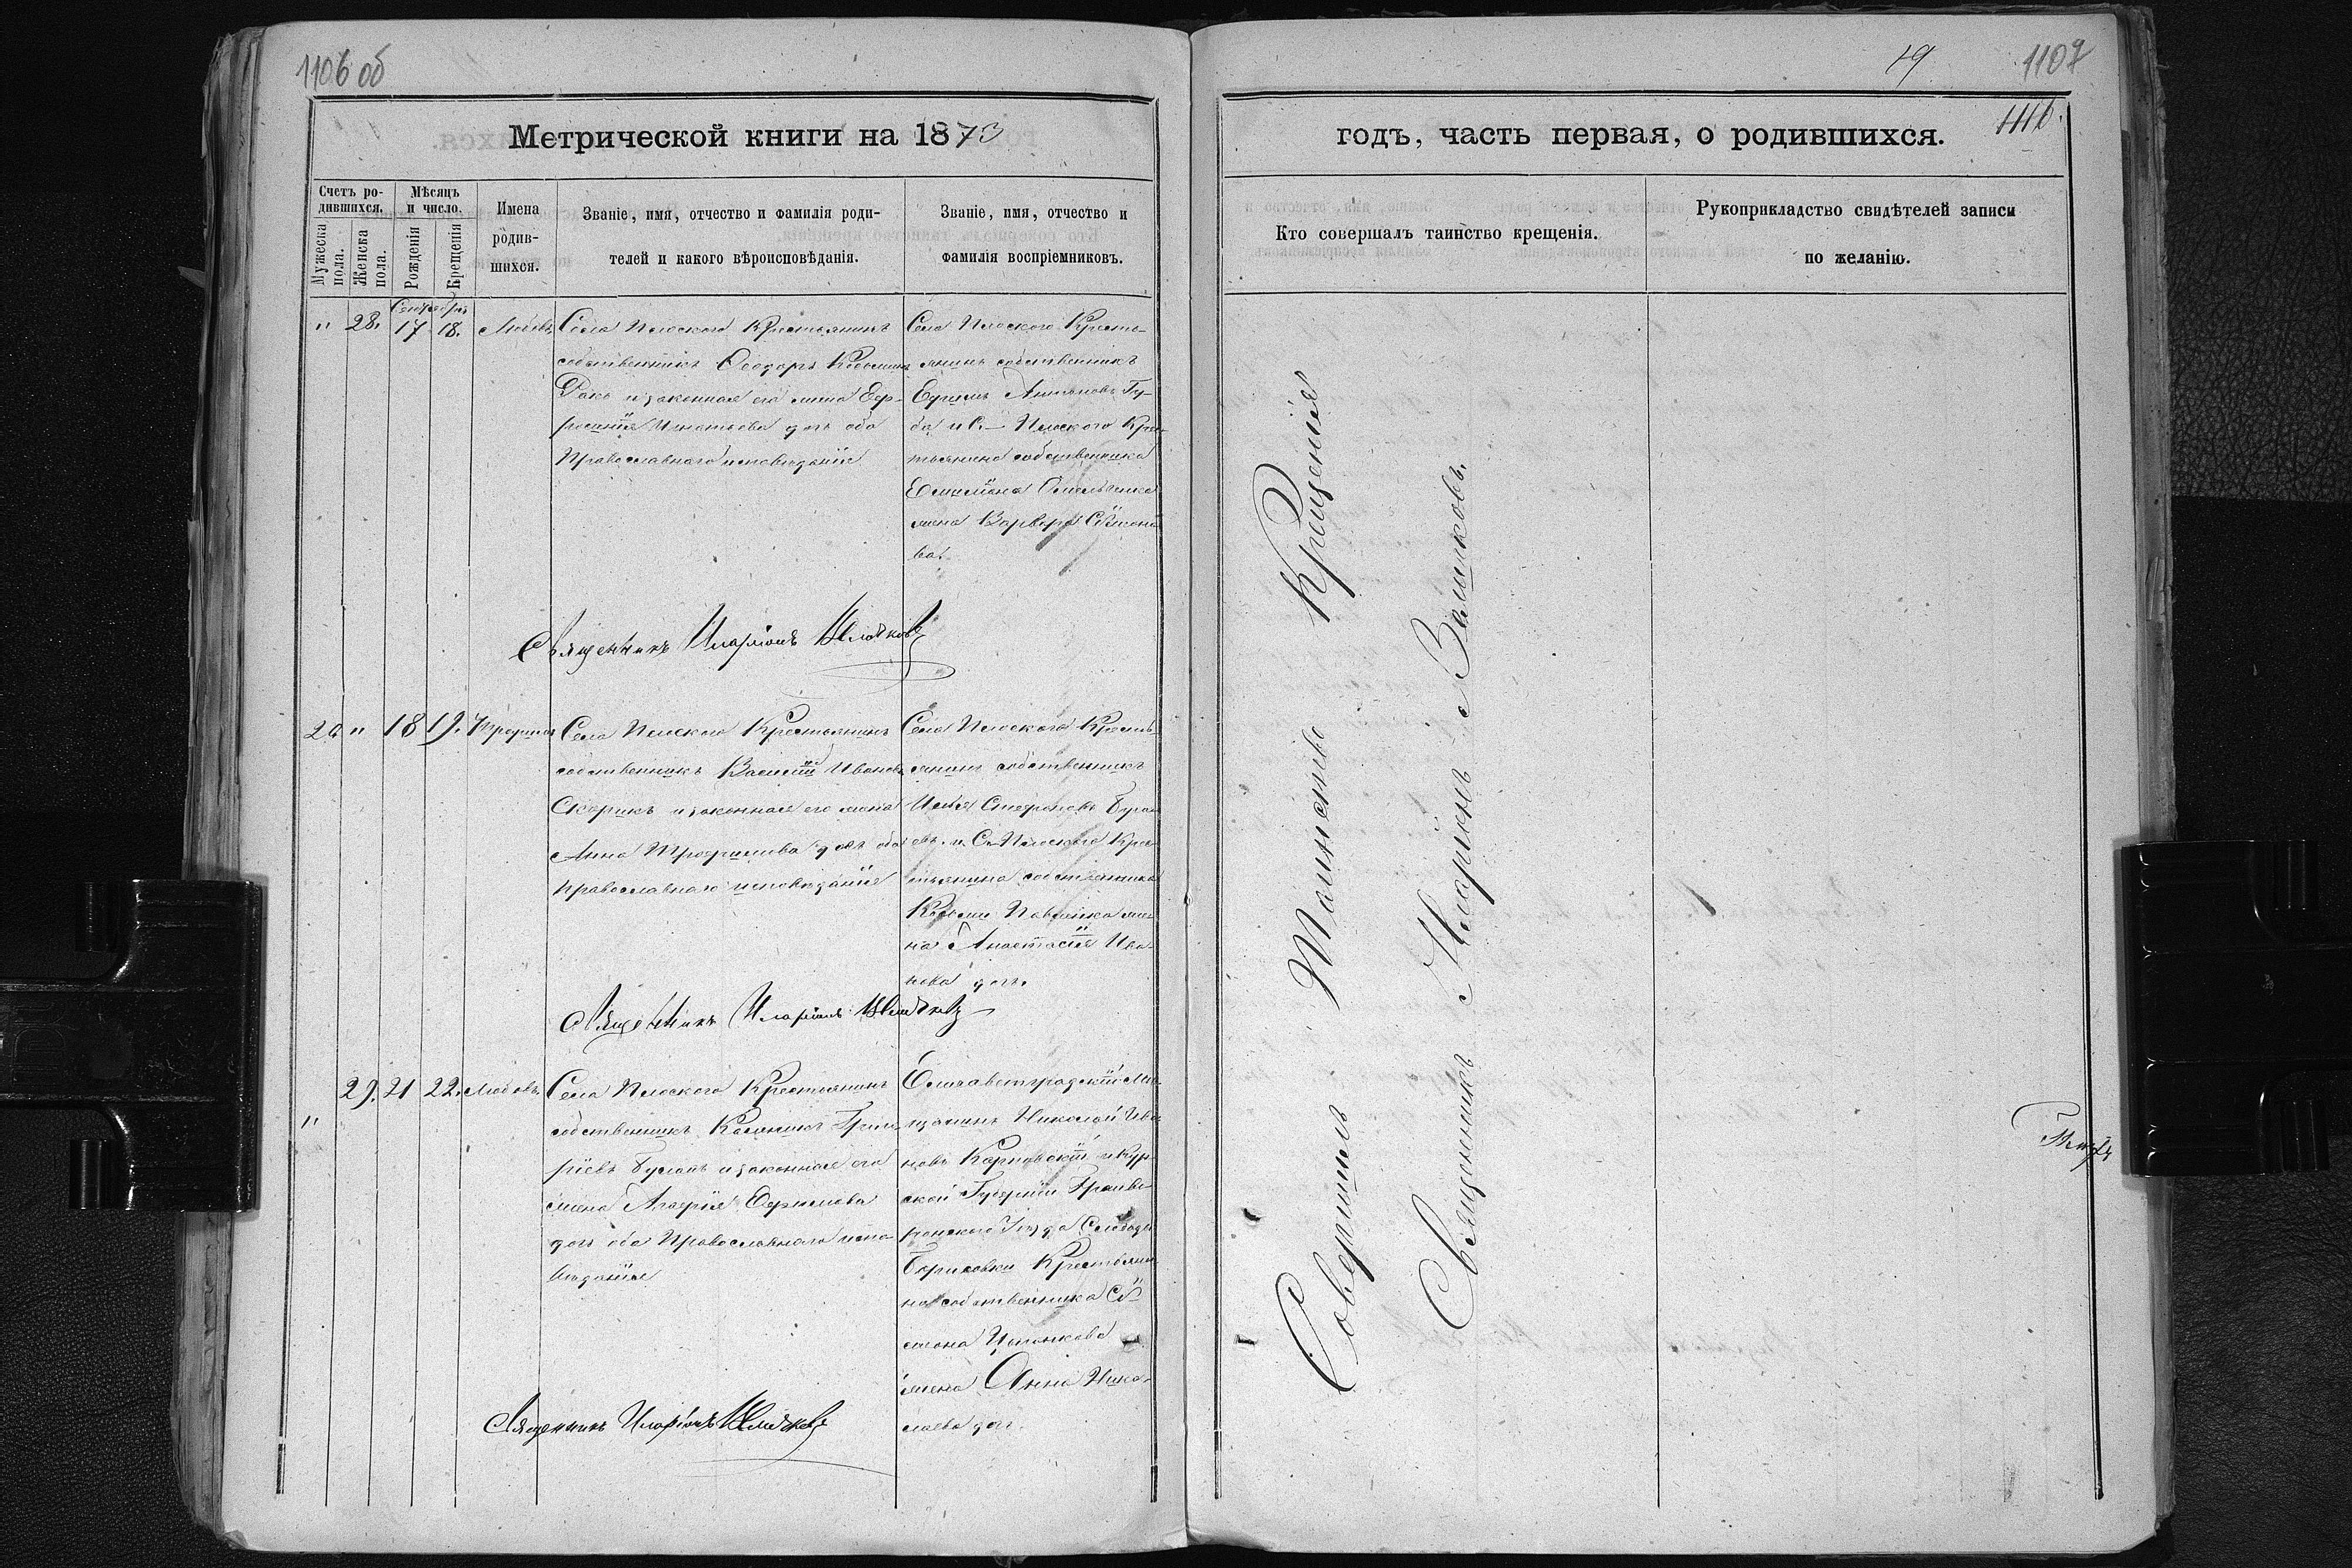 1106 об
Метрической книги на 1873
Счетъ ро-
дившихся.
Мѣсяцъ
и число.
Мужеска
пола.
Женска
пола.
Рожденія
Крещенія
Имена
родив-
шихся.
Званіе, имя, отчество и фамилія роди-
телей и какого вѣроисповѣданія.
Званіе, имя, отчество и
фамилія воспріемниковъ.
Сентябрь
" 28. 17 18. Любовь
Села Плоского Крестьянинъ
собственникъ Ѳеодоръ
Ракъ и законная его жена Еф-
росинія Игнатьева дочь оба
Православнаго исповѣданія
Села Плоского Кресть-
янинъ собственникъ
Ефимъ Антоновъ Гу-
ба и С. Плоского Крес-
тьянина собственника
Емиліана Омельченка
жена Варвара Сѵмоно-
ва.
Священникъ Иларіонъ
" 18 19. Трофимъ
Села Плоского Крестьянинъ
собственникъ Василій Ивановъ
Скорикъ и законная его жена
Анна Трофимова дочь оба
православнаго исповѣданія
Села Плоского Кресть-
янинъ собственникъ
Илья Стефановъ
и С. Плоского Крес-
тьянина собственника
Козьмы Павленка же-
на Анастасія Ива-
нова дочь.
Священникъ Иларіонъ
" 29. 21 22. Любовь
Села Плоского Крестьянинъ
собственникъ Калиникъ Григо-
ріевъ и законная его
жена Агафія Ефимова
дочь оба Православнаго испо-
вѣданія
Елисаветградскій Мѣ-
щанинъ Николай Ива-
новъ Карповскій и Кур-
ской Губерніи Грайво-
ронского Уѣзда Слободы
Борисовки Крестьяни-
на собственника Сѵ-
меона
жена Анна Нико-
лаева дочь
Священникъ Иларіонъ
19
1107
1116.
годъ, часть первая, о родившихся.
Кто совершалъ таинство крещенія.
Рукоприкладство свидѣтелей записи
по желанію.
Совершилъ Таинство Крещенія
Священникъ Иларіонъ